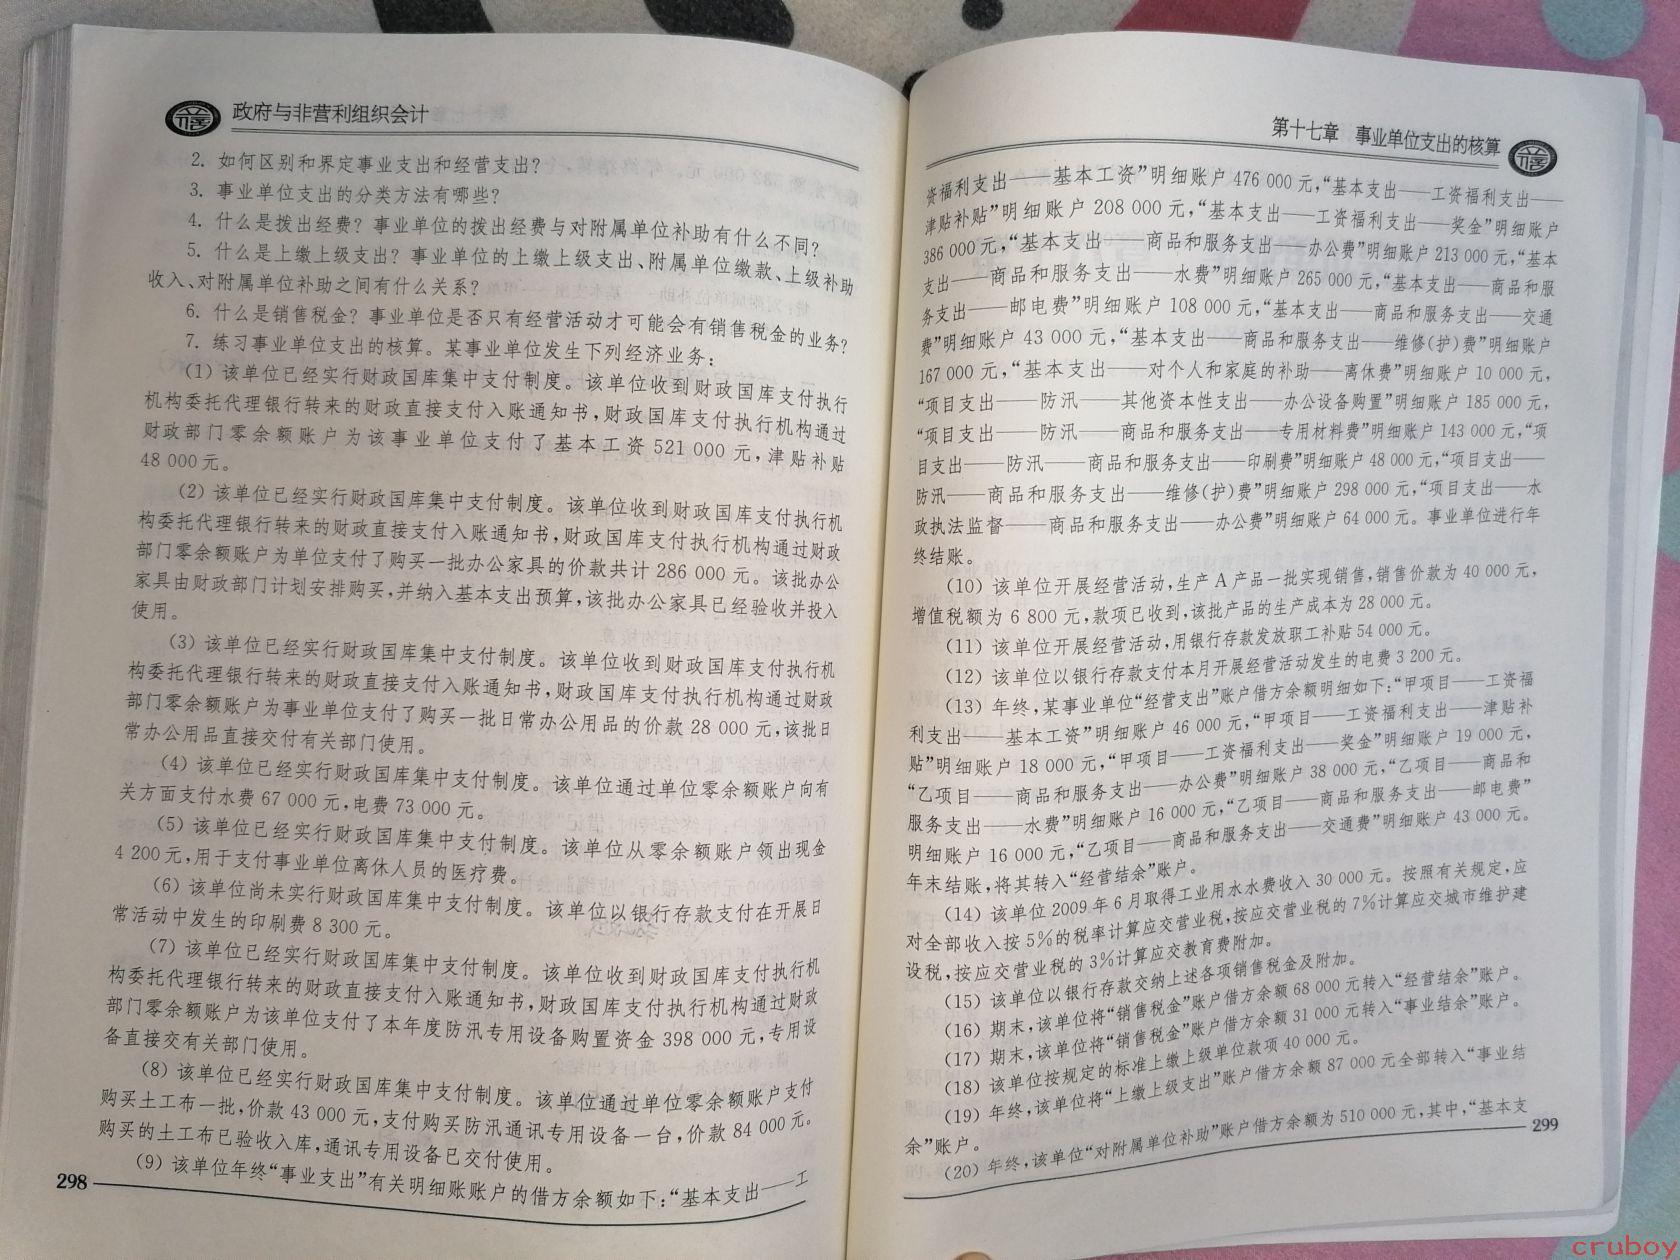 政府与非营利组织会计
2. 如何区别和界定事业支出和经营支出?
3. 事业单位支出的分类方法有哪些?
4. 什么是拨出经费? 事业单位的拨出经费与对附属单位补助有什么不同?
5. 什么是上缴上级支出? 事业单位的上缴上级支出、附属单位缴款、上级补助
收入、对附属单位补助之间有什么关系?
6. 什么是销售税金? 事业单位是否只有经营活动才可能会有销售税金的业务?
7. 练习事业单位支出的核算。某事业单位发生下列经济业务:
(1) 该单位已经实行财政国库集中支付制度。该单位收到财政国库支付执行
机构委托代理银行转来的财政直接支付入账通知书,财政国库支付执行机构通过
财政部门零余额账户为该事业单位支付了基本工资 521 000 元,津贴补贴
48 000 元。
(2) 该单位已经实行财政国库集中支付制度。该单位收到财政国库支付执行机
构委托代理银行转来的财政直接支付入账通知书,财政国库支付执行机构通过财政
部门零余额账户为单位支付了购买一批办公家具的价款共计 286 000 元。该批办公
家具由财政部门计划安排购买,并纳入基本支出预算,该批办公家具已经验收并投入
使用。
(3) 该单位已经实行财政国库集中支付制度。该单位收到财政国库支付执行机
构委托代理银行转来的财政直接支付入账通知书,财政国库支付执行机构通过财政
部门零余额账户为事业单位支付了购买一批日常办公用品的价款 28 000 元,该批日
常办公用品直接交付有关部门使用。
(4) 该单位已经实行财政国库集中支付制度。该单位通过单位零余额账户向有
关方面支付水费 67 000 元,电费 73 000 元。
(5) 该单位已经实行财政国库集中支付制度。该单位从零余额账户领出现金
4 200 元,用于支付事业单位离休人员的医疗费。
(6) 该单位尚未实行财政国库集中支付制度。该单位以银行存款支付在开展日
常活动中发生的印刷费 8 300 元。
(7) 该单位已经实行财政国库集中支付制度。该单位收到财政国库支付执行机
构委托代理银行转来的财政直接支付入账通知书,财政国库支付执行机构通过财政
部门零余额账户为该事业单位支付了本年度防汛专用设备购置资金 398 000 元,专用设
备直接交有关部门使用。
(8) 该单位已经实行财政国库集中支付制度。该单位通过单位零余额账户支付
购买土工布一批,价款 43 000 元,支付购买防汛通讯专用设备一台,价款 84 000 元。
购买的土工布已验收入库,通讯专用设备已交付使用。
(9) 该单位年终“事业支出”有关明细账账户的借方余额如下:“基本支出——工
298
第十七章 事业单位支出的核算
资福利支出——基本工资”明细账户 476 000 元,“基本支出——工资福利支出——
津贴补贴”明细账户 208 000 元,“基本支出——工资福利支出——奖金”明细账户
386 000 元,“基本支出——商品和服务支出——办公费”明细账户 213 000 元,“基本
支出——商品和服务支出——水费”明细账户 265 000 元,“基本支出——商品和服
务支出——邮电费”明细账户 108 000 元,“基本支出——商品和服务支出——交通
费”明细账户 43 000 元,“基本支出——商品和服务支出——维修(护)费”明细账户
167 000 元,“基本支出——对个人和家庭的补助——离休费”明细账户 10 000 元,
“项目支出——防汛——其他资本性支出——办公设备购置”明细账户 185 000 元,
“项目支出——防汛——商品和服务支出——专用材料费”明细账户 143 000 元,“项
目支出——防汛——商品和服务支出——印刷费”明细账户 48 000 元,“项目支出——
防汛——商品和服务支出——维修(护)费”明细账户 298 000 元,“项目支出——水
政执法监督——商品和服务支出——办公费”明细账户 64 000 元。事业单位进行年
终结账。
(10) 该单位开展经营活动,生产 A 产品一批实现销售,销售价款为 40 000 元,
增值税额为 6 800 元,款项已收到,该批产品的生产成本为 28 000 元。
(11) 该单位开展经营活动,用银行存款发放职工补贴 54 000 元。
(12) 该单位以银行存款支付本月开展经营活动发生的电费 3 200 元。
(13) 年终,某事业单位“经营支出”账户借方余额明细如下:“甲项目——工资福
利支出——基本工资”明细账户 46 000 元,“甲项目——工资福利支出——津贴补
贴”明细账户 18 000 元,“甲项目——工资福利支出——奖金”明细账户 19 000 元,
“乙项目——商品和服务支出——办公费”明细账户 38 000 元,“乙项目——商品和
服务支出——水费”明细账户 16 000 元,“乙项目——商品和服务支出——邮电费”
明细账户 16 000 元,“乙项目——商品和服务支出——交通费”明细账户 43 000 元。
年末结账,将其转入“经营结余”账户。
(14) 该单位 2009 年 6 月取得工业用水水费收入 30 000 元。按照有关规定,应
对全部收入按 5%的税率计算应交营业税,按应交营业税的 7%计算应交城市维护建
设税,按应交营业税的 3%计算应交教育费附加。
(15) 该单位以银行存款交纳上述各项销售税金及附加。
(16) 期末,该单位将“销售税金”账户借方余额 68 000 元转入“经营结余”账户。
(17) 期末,该单位将“销售税金”账户借方余额 31 000 元转入“事业结余”账户。
(18) 该单位按规定的标准上缴上级单位款项 40 000 元。
(19) 年终,该单位将“上缴上级支出”账户借方余额 87 000 元全部转入“事业结
余”账户。
(20) 年终,该单位“对附属单位补助”账户借方余额为 510 000 元,其中,“基本支
299
cruboy